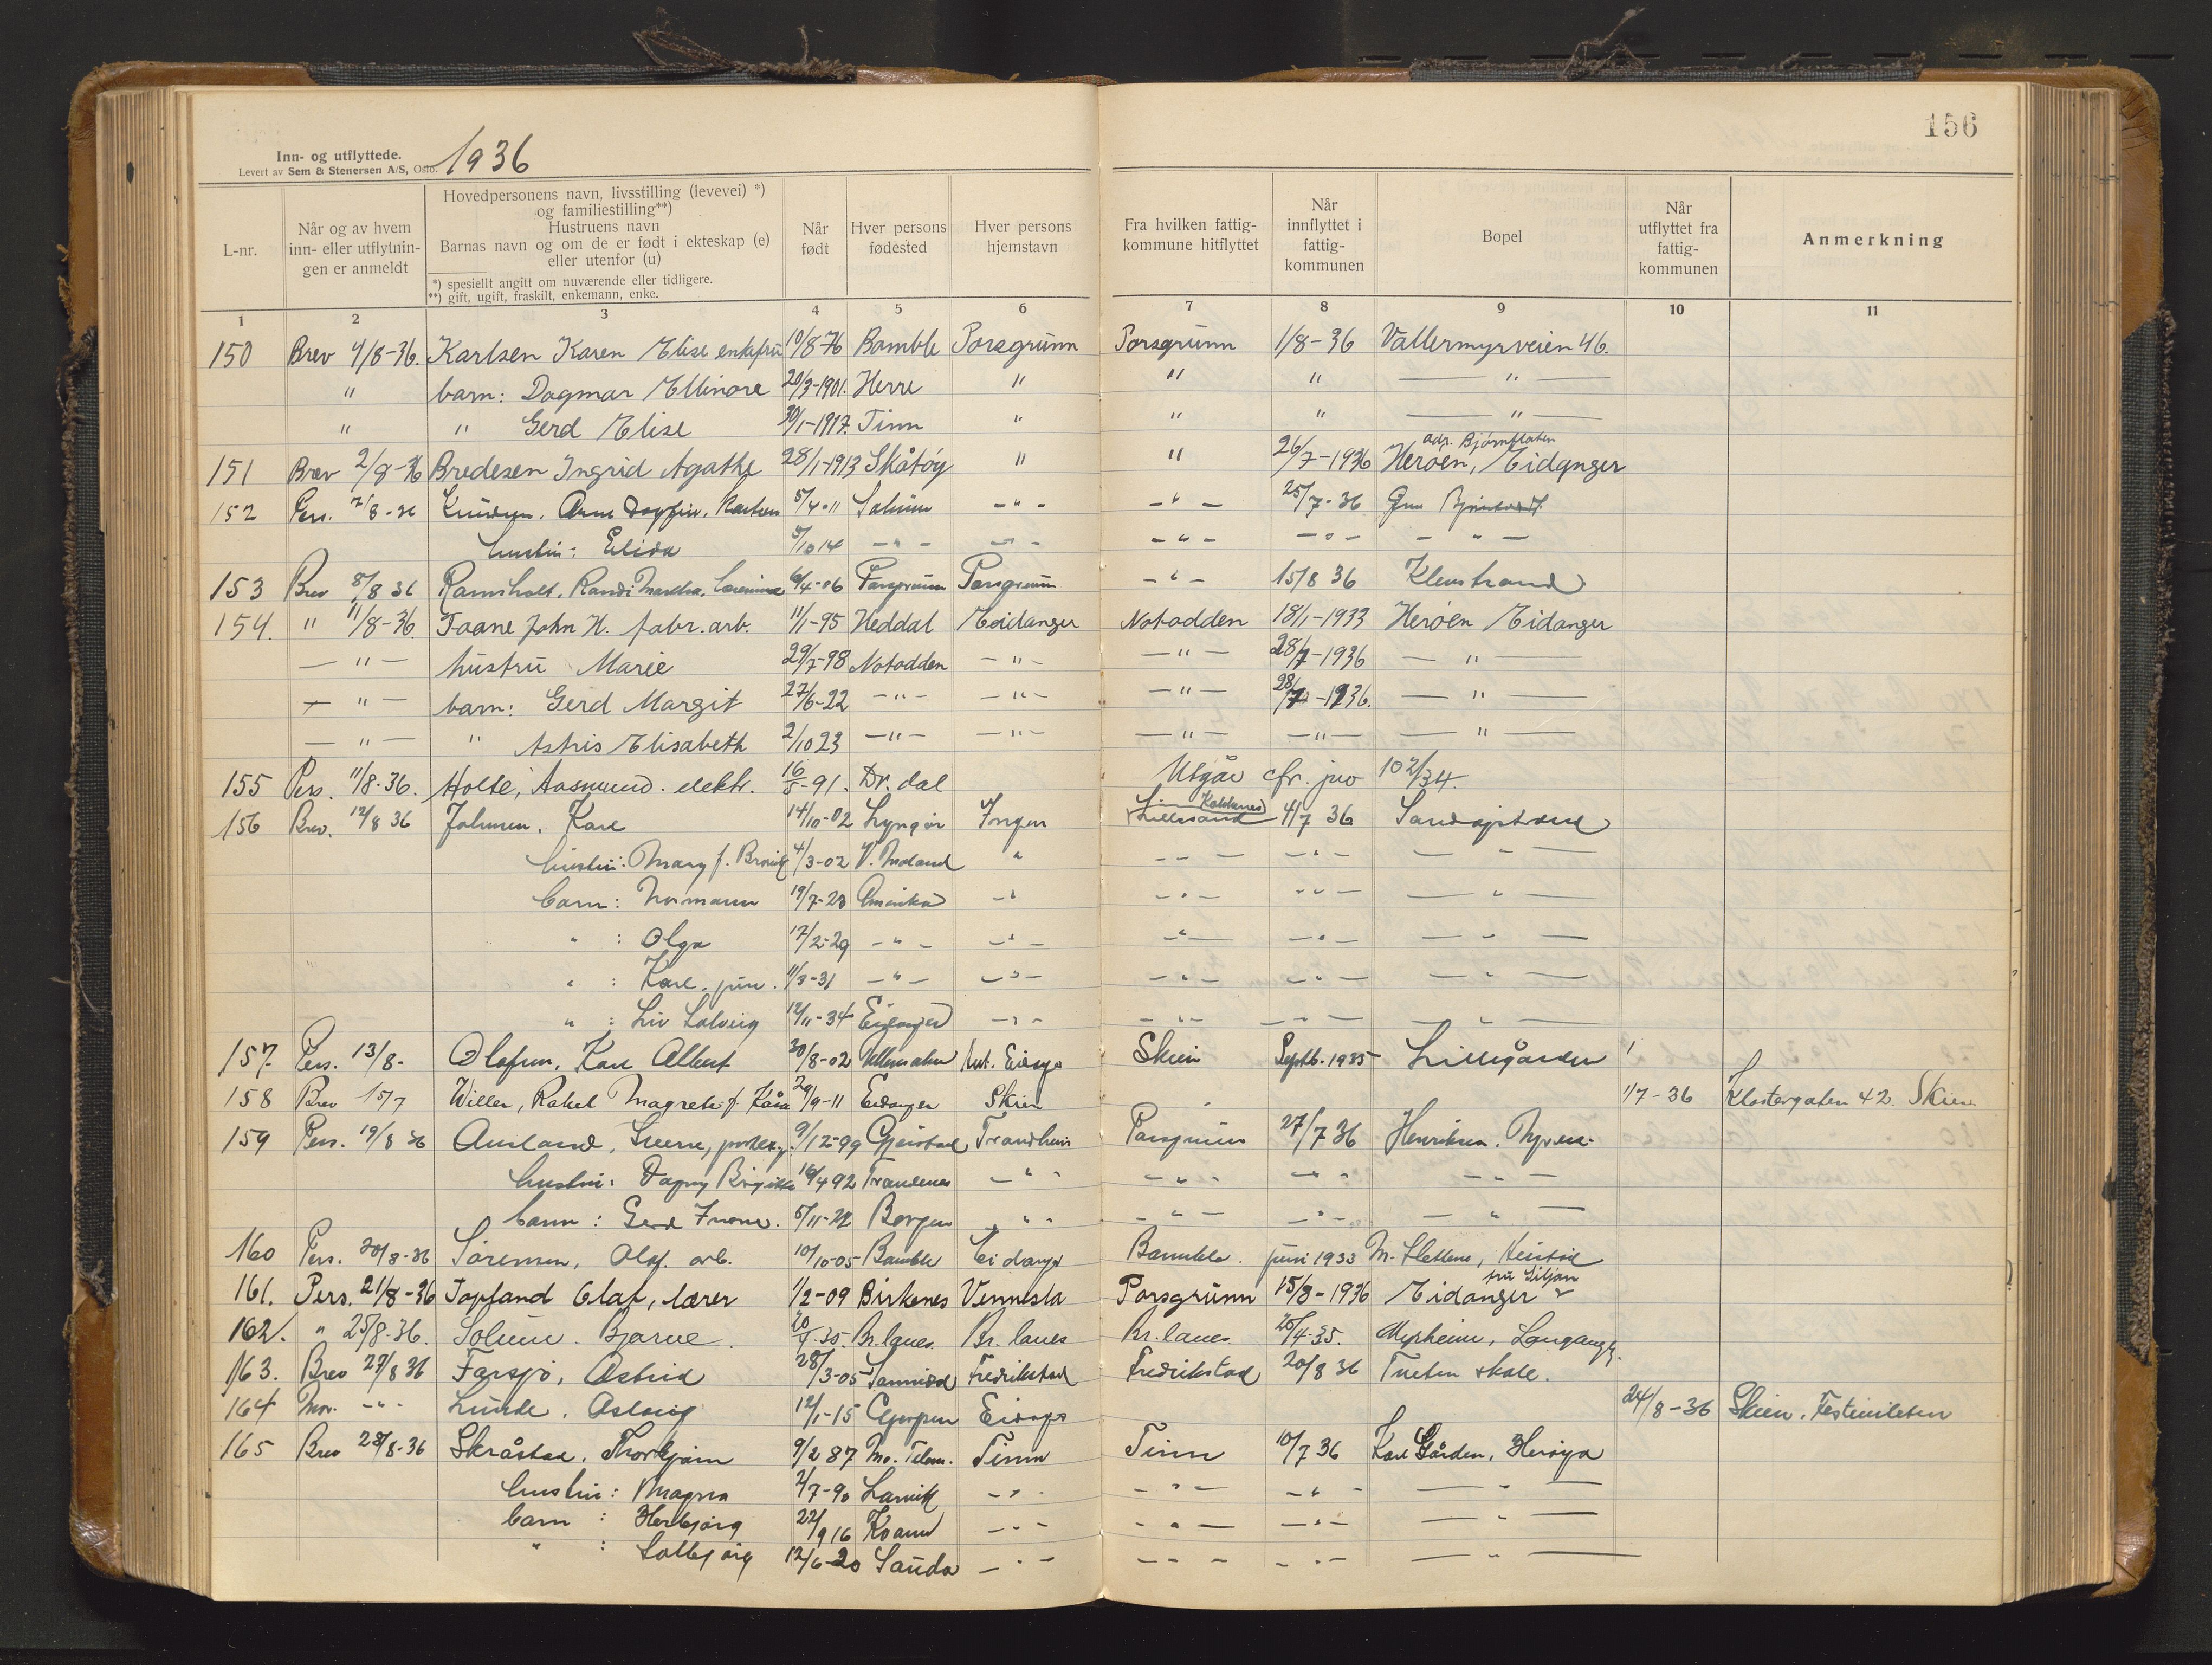 156
Inn- og utflyttede. 1936
Levert av Sem & Stenersen A/S, Oslo.
L-nr.
Når og av hvem inn- eller utflytnin-gen er anmeldt
Hovedpersonens navn, livsstilling (levevei) *)
og familiestilling**)
Hustruens navn
Barnas navn og om de er født i ekteskap (e)
eller utenfor (u)
*) spesiellt angitt om nuværende eller tidligere.
**) gift, ugift, fraskilt, enkemann, enke.
Når født
Hver persons fødested
Hver persons hjemstavn
Fra hvilken fattig-kommune hitflyttet
Når innflyttet i fattig-kommunen
Bopel
Når utflyttet fra fattig-kommunen
Anmerkning
1 2 3 4 5 6 7 8 9 10 11
150 Brev 4/8-36. Karlsen Karen Elise enkefru 10/8-76 Bamble Porsgrunn Porsgrunn 1/8-36 Vallermyrveien 46.
" barn: Dagmar Ellinore 20/3-1901. Herre " " " — " —
" " Gerd Elise 30/1-1917. Tinn " " " — " —
adr. Bjørnflaten
151 Brev 2/8-36 Bredesen Ingrid Agathe 28/1-1913 Skåtøy " " 26/7-1936 Herøen, Eidanger
152 Pers. 7/8-36 Knudsen, Arne Dagfin, 5/4-11 Solum - " - - " - 25/7-36
hustru: Elida 5/10 14 - " - - " - - " - - " - - " -
153 Brev 8/8 36 Ramsholt, Randi Martha, 6/4-06 Porsgrunn Porsgrunn - " - 15/8 36 Klevstrand
154. " 11/8-36. Taane John H. fabr. arb. 11/1-95 Heddal Eidanger Notodden 18/1-1933 Herøen Eidanger
— " — hustru Marie 29/7-98 Notodden - " - — " — 28/7-1936 — " —
— " — barn: Gerd Margit 27/6-22 - " - - " - — " — 28/7-1936. — " —
— " — " Astris Elisabeth 2/10 23 — " — - " - — " — — " — — " —
155 Pers. 11/8-36. Holte, Aasmund. elektr. 16/8-91. Dr. dal Utgår cfr. jno 102/34.
156 Brev. 12/8 36 Johnsen, Karl 14/10-02 Lyngør Ingen Lillesand 4/7 36
hustru: Mary f. 4/3-02 V. Moland " - - - - " - — " —
barn: Normann 19/7-28 Amerika - " - " - - " - — " —
" : Olga 17/2-29 - " - - " - - " - - " - — " —
" : Karl jun. 11/3-31 - " - - " - - " - - " - — " —
" : Liv Solveig 12/11-34 Eidanger - " - - " - - " - — " —
157 Pers. 13/8- Olafsen, Karl Albert 30/8-02 Skien Septb. 1935 Lillegården
158 Brev 15/7 Willer, Rakel Magrete f. Kåsa 29/9-11 Eidanger Skien 1/7-36 Klostergaten 42. Skien
159 Pers. 19/8 36 Ausland, Sverre, 9/12-99 Gjerstad Trondheim Porsgrunn 27/7 36 Henriksen, Myrene
hustru: Dagny Birgitte 16/4 92 Trondenes - " - - " - - " - - " -
barn: Gerd 5/11-22 Bergen - " - - " - - " - — " —
160 Pers. 20/8-36 Sørensen, Olaf. arb. 10/10-05 Bamble Eidanger Bamble. juni 1933 M. Slettene, Heistad
fru Siljan
161. Pers. 21/8-36 Topland Olaf, lærer 1/2-09 Birkenes Vennesla Porsgrunn 15/8-1936 Eidanger
162. " 25/8-36. Solum. Bjarne Br.lanes. Br. lanes Br. lanes 25/4-35. Myrheim, Langangen.
163. Brev 27/8 36 Farsjø, Astrid 28/3-05 Sannidal Fredrikstad Fredrikstad 20/8 36 Tveten skole.
164 - " - Lunde, Aslaug 12/1-15 Gjerpen Eidanger 24/8-36 Skien, Festiviteten
165 Brev 28/8-36 Skråstad, Thorbjørn 9/2 87 Mo. Telem. Tinn Tinn 10/7 36 Karl Gården, Herøya
hustru: Magna 2/7-90 Larvik - " - - " - - " - — " —
barn: Herbjørg 22/9 16 - " - - " - - " - — " —
" : Solbjørg 12/6-20 Sauda - " - - - - - " - — " —